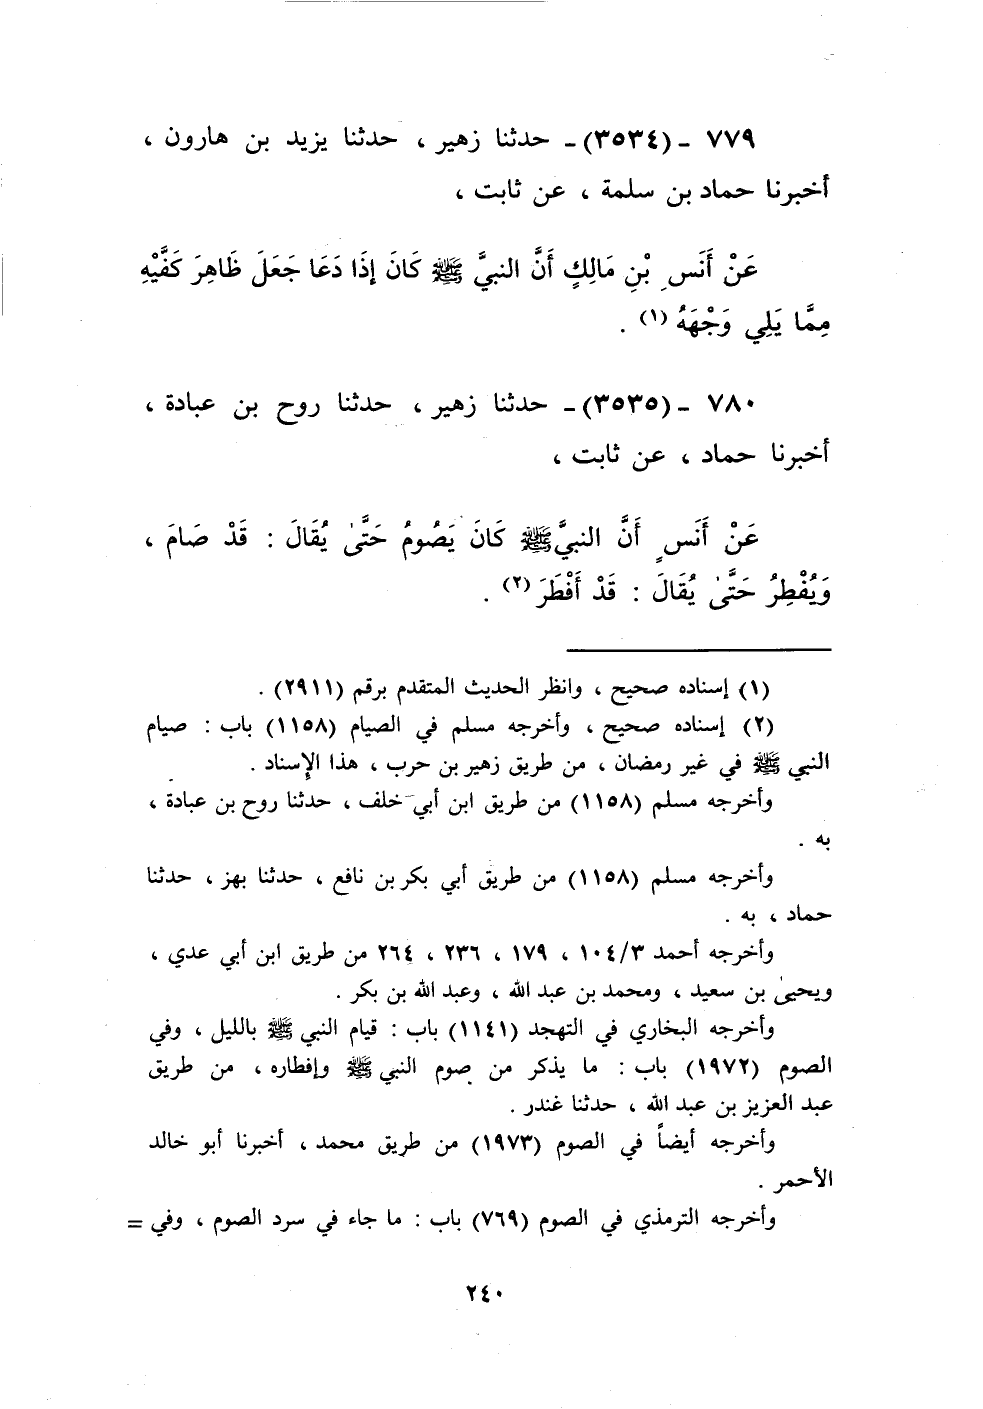 ٧٧٩ - (٣٥٣٤) - حدثنا زهير ، حدثنا يزيد بن هارون ،
أخبرنا حماد بن سلمة ، عن ثابت ،
عَنْ أَنَسِ بْنِ مَالِكٍ أَنَّ النبيَّ ﷺ كَانَ إِذَا دَعَا جَعَلَ ظَاهِرَ كَفَّيْهِ
مِمَّا يَلِي وَجْهَهُ (١) .
٧٨٠ - (٣٥٣٥) - حدثنا زهير ، حدثنا روح بن عبادة ،
أخبرنا حماد ، عن ثابت ،
عَنْ أَنَسٍ أَنَّ النبيَّ ﷺ كَانَ يَصُومُ حَتَّىٰ يُقَالَ : قَدْ صَامَ ،
وَيُفْطِرُ حَتَّىٰ يُقَالَ : قَدْ أَفْطَرَ (٢) .
(١) إسناده صحيح ، وانظر الحديث المتقدم برقم (٢٩١١) .
(٢) إسناده صحيح ، وأخرجه مسلم في الصيام (١١٥٨) باب : صيام
النبي ﷺ في غير رمضان ، من طريق زهير بن حرب ، هذا الإسناد .
وأخرجه مسلم (١١٥٨) من طريق ابن أبي خلف ، حدثنا روح بن عبادة ،
به .
وأخرجه مسلم (١١٥٨) من طريق أبي بكر بن نافع ، حدثنا بهز ، حدثنا
حماد ، به .
وأخرجه أحمد ١٠٤/٣ ، ١٧٩ ، ٢٣٦ ، ٢٦٤ من طريق ابن أبي عدي ،
ويحيىٰ بن سعيد ، ومحمد بن عبد الله ، وعبد الله بن بكر .
وأخرجه البخاري في التهجد (١١٤١) باب : قيام النبي ﷺ بالليل ، وفي
الصوم (١٩٧٢) باب : ما يذكر من صوم النبي ﷺ وإفطاره ، من طريق
عبد العزيز بن عبد الله ، حدثنا غندر .
وأخرجه أيضاً في الصوم (١٩٧٣) من طريق محمد ، أخبرنا أبو خالد
الأحمر .
وأخرجه الترمذي في الصوم (٧٦٩) باب : ما جاء في سرد الصوم ، وفي =
٢٤٠